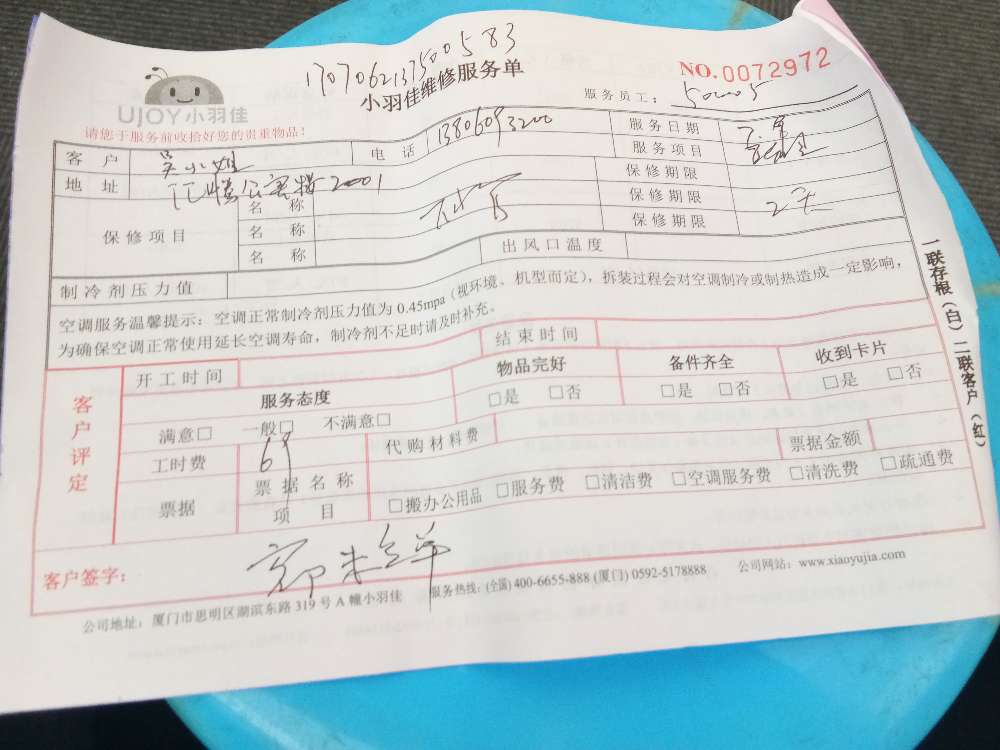 1707062137500583
NO.0072972
小羽佳维修服务单
UJOY小羽佳
服务员工：
请您于服务前收拾好您的贵重物品！
客 户 吴小姐 电 话 13806093200 服务日期
服务项目
地 址 2001 保修期限
保修项目 名 称 保修期限
名 称 保修期限 2天
名 称 出风口温度
制冷剂压力值
空调服务温馨提示：空调正常制冷剂压力值为 0.45mpa（视环境、机型而定），拆装过程会对空调制冷或制热造成一定影响，
为确保空调正常使用延长空调寿命，制冷剂不足时请及时补充。
开工时间 结束时间
客户评定
服务态度 物品完好 备件齐全 收到卡片
满意□ 一般□ 不满意□ □是 □否 □是 □否 □是 □否
工时费 69 代购材料费 票据金额
票据 票据名称
项 目 □搬办公用品 □服务费 □清洁费 □空调服务费 □清洗费 □疏通费
客户签字：
公司地址：厦门市思明区湖滨东路 319 号 A 幢小羽佳 服务热线：(全国) 400-6655-888 (厦门) 0592-5178888 公司网站：www.xiaoyujia.com
一联存根（白） 二联客户（红）